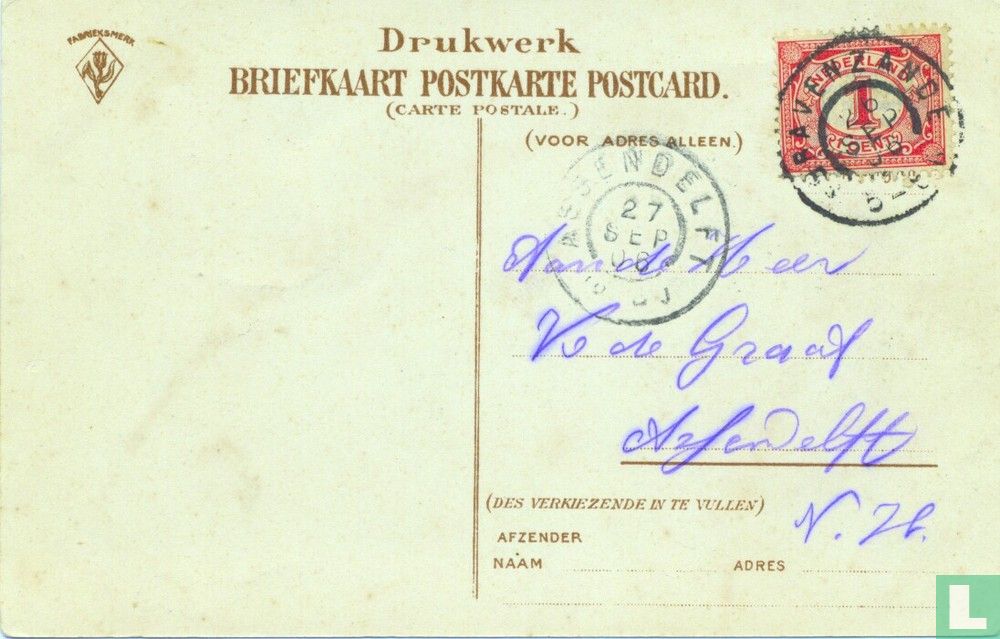 FABRIEKSMERK
Drukwerk
BRIEFKAART POSTKARTE POSTCARD.
(CARTE POSTALE.)
(VOOR ADRES ALLEEN.)
NEDERLAND
1
CENT
'SGRAVENZANDE
SEP
ASSENDELFT
27
SEP
06
Aan de Heer
de Graaf
Assendelft
N. H.
(DES VERKIEZENDE IN TE VULLEN)
AFZENDER
NAAM ADRES
L